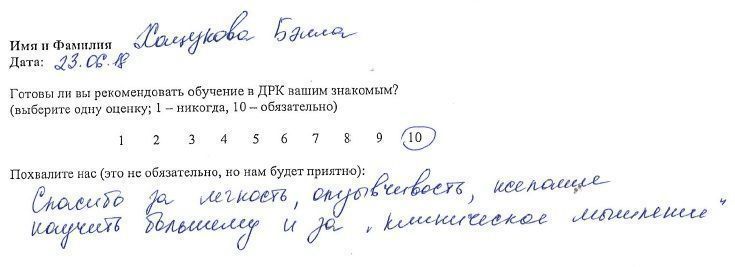 Имя и Фамилия Хацукова Бэлла
Дата: 23.06.18
Готовы ли вы рекомендовать обучение в ДРК вашим знакомым?
(выберите одну оценку; 1 – никогда, 10 – обязательно)
1 2 3 4 5 6 7 8 9 10
Похвалите нас (это не обязательно, но нам будет приятно):
Спасибо за легкость, отзывчивость, желание
научить большему и за „клиническое мышление“